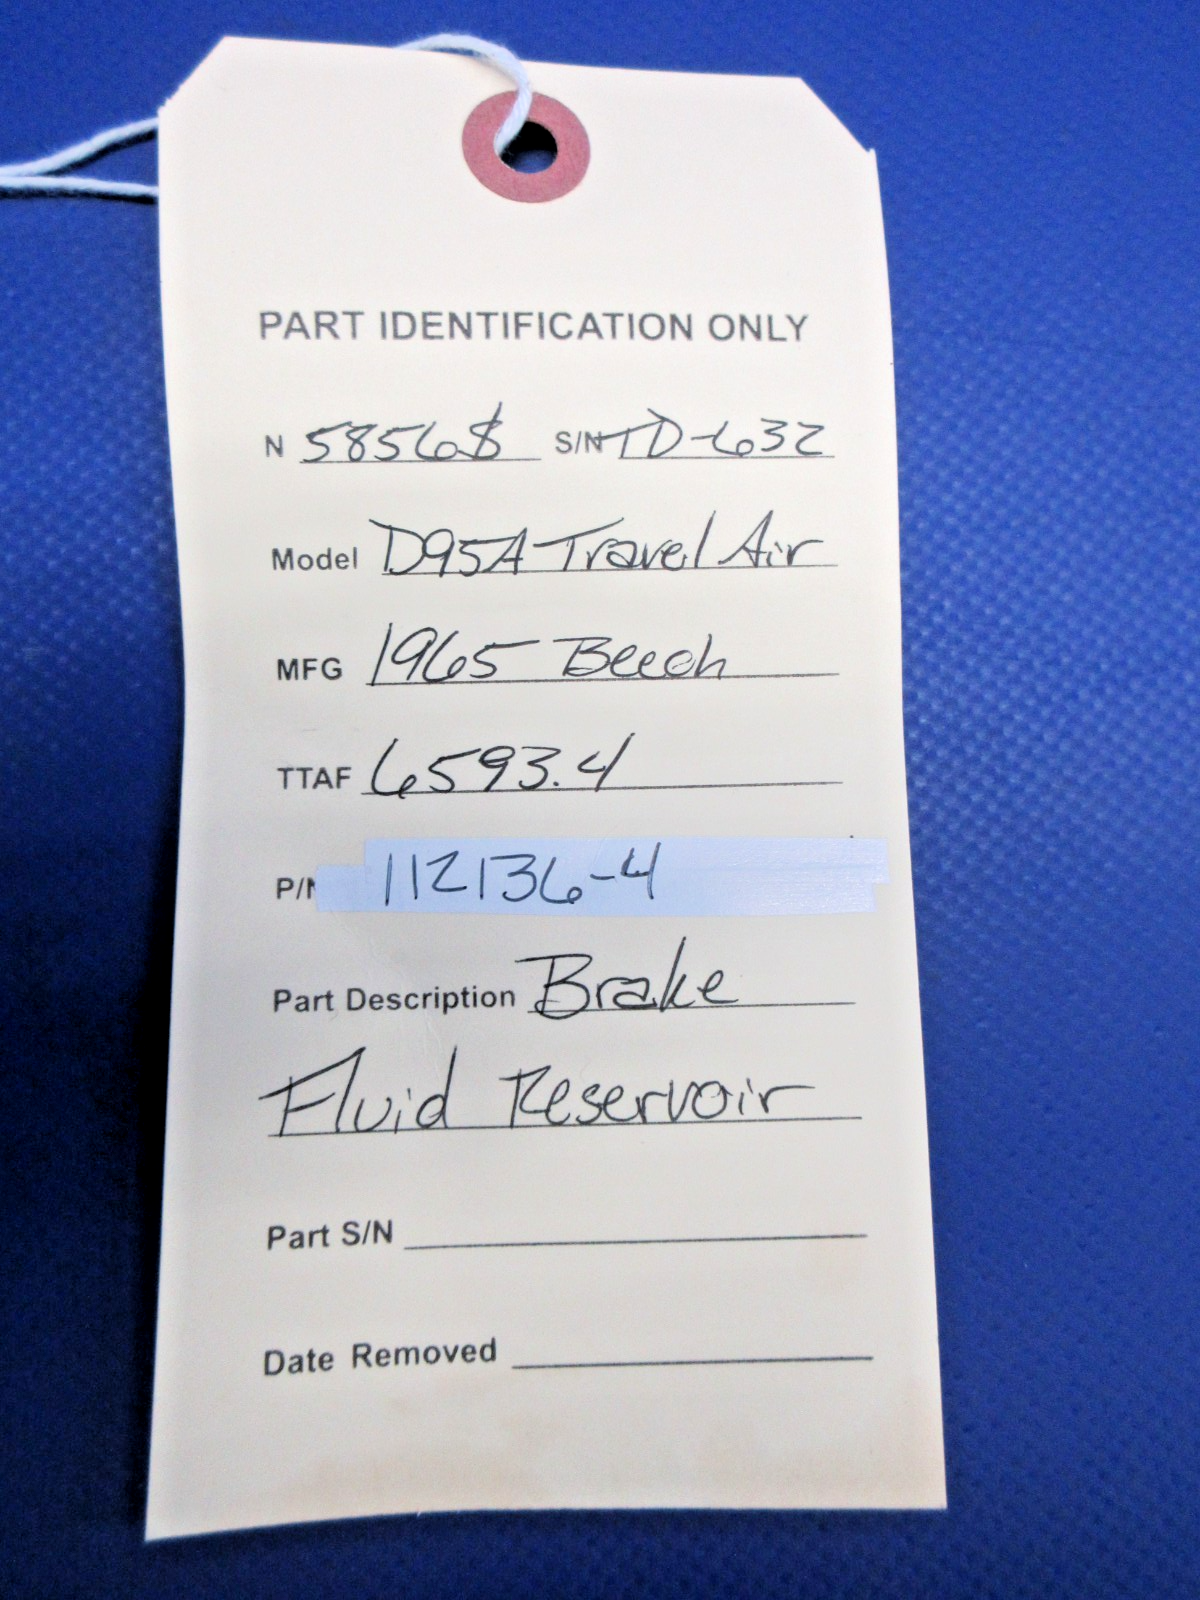 PART IDENTIFICATION ONLY
N 5856$ S/N TD-632
Model D95A Travel Air
MFG 1965 Beech
TTAF 6593.4
P/N 112136-4
Part Description Brake
Fluid Reservoir
Part S/N
Date Removed